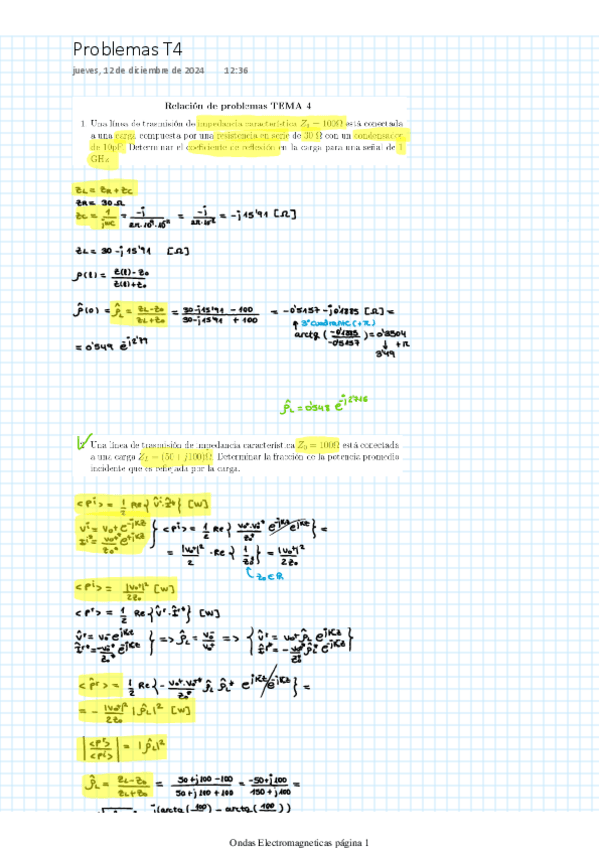 Problemas T4
jueves, 12 de diciembre de 2024 12:36
Relación de problemas TEMA 4
1. Una línea de trasmisión de impedancia característica Z₀ = 100Ω está conectada
a una carga compuesta por una resistencia en serie de 30 Ω con un condensador
de 10pF. Determinar el coeficiente de reflexión en la carga para una señal de 1
GHz.
z_L = z_R + z_C
z_R = 30 Ω
z_C = 1/jωC = -j/(2π·10⁹·10⁻¹¹) = -j/(2π·10⁻²) = -j 15'91 [Ω]
z_L = 30 - j 15'91 [Ω]
ρ(l) = (z(l) - z₀)/(z(l) + z₀)
ρ̂(0) = ρ̂_L = (z_L - z₀)/(z_L + z₀) = (30 - j15'91 - 100)/(30 - j15'91 + 100) = -0'5157 - j0'1885 [Ω] =
3º cuadrante (+π)
arctg(-0'1885/-0'5157) = 0'3504
+π
3'49
= 0'549 e^(-j2'79)
ρ̂_L = 0'548 e^(-j2'716)
2. Una línea de trasmisión de impedancia característica Z₀ = 100Ω está conectada
a una carga Z_L = (50 + j100)Ω. Determinar la fracción de la potencia promedio
incidente que es reflejada por la carga.
<Pⁱ> = 1/2 Re{v̂ⁱ·î^(i*)} [W]
vⁱ = v₀⁺ e^(-jkz)
î^(i*) = v₀^(+*)/z₀* e^(+jkz)
} <Pⁱ> = 1/2 Re{v₀⁺·v₀^(+*)/z₀* e^(-jkz) e^(jkz)} =
= |v₀⁺|²/2 · Re{1/z₀*} = |v₀⁺|²/2z₀
z₀ ∈ R
<Pⁱ> = |v₀⁺|²/2z₀
<Pʳ> = 1/2 Re{v̂ʳ·î^(r*)} [W]
v̂ʳ = v₀⁻ e^(jkz)
î^(r*) = -v₀^(-*)/z₀* e^(-jkz)
} => ρ̂_L = v₀⁻/v₀⁺ => { v̂ʳ = v₀⁺ ρ̂_L e^(jkz)
î^(r*) = -v₀^(+*)/z₀* ρ̂_L* e^(-jkz) }
<P̂ʳ> = 1/2 Re{-v₀⁺·v₀^(+*)/z₀* ρ̂_L ρ̂_L* e^(jkz) e^(-jkz)} =
= -|v₀⁺|²/2z₀ |ρ̂_L|² [W]
|<Pʳ>/<Pⁱ>| = |ρ̂_L|²
ρ̂_L = (z_L - z₀)/(z_L + z₀) = (50 + j100 - 100)/(50 + j100 + 100) = (-50 + j100)/(150 + j100) =
Ondas Electromagneticas página 1